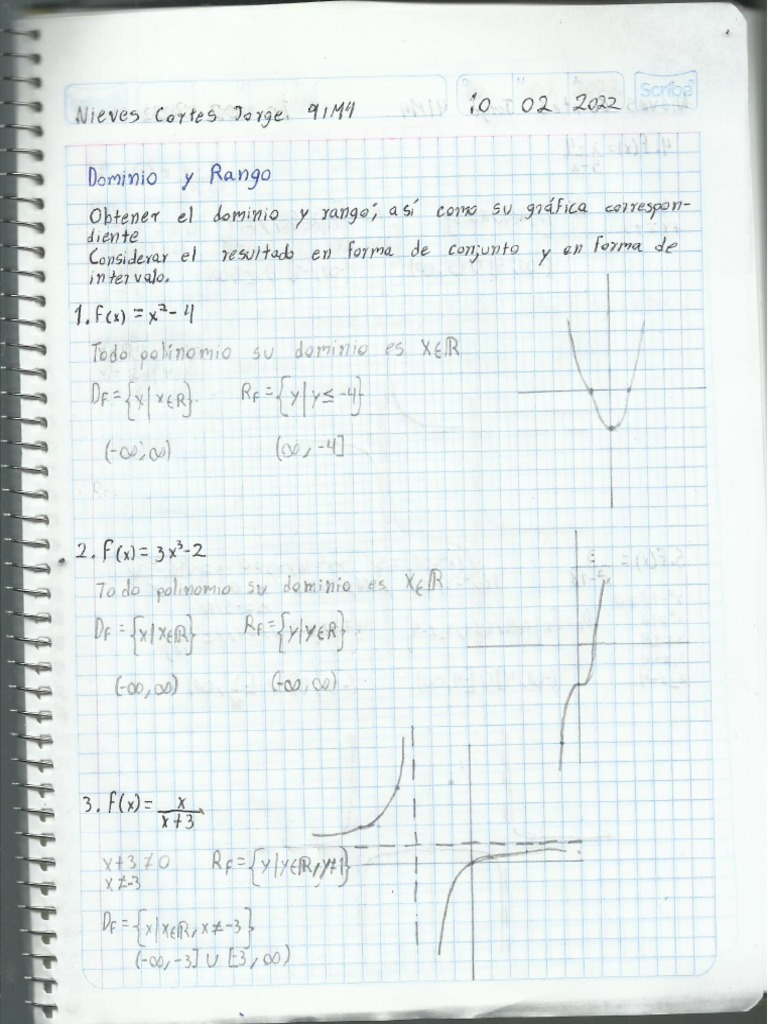 Scribe
Nieves Cortes Jorge. 91M4 10 02 2022
Dominio y Rango
Obtener el dominio y rango; así como su gráfica correspon-
diente
Considerar el resultado en forma de conjunto y en forma de
intervalo.
1. f(x) = x²- 4
Todo polinomio su dominio es x∈ℝ
Df = {x | x∈ℝ}. Rf = {y | y ≤ -4}
(-∞, ∞) (∞, -4]
2. f(x) = 3x³-2
Todo polinomio su dominio es x∈ℝ
Df = {x | x∈ℝ} Rf = {y | y∈ℝ}
(-∞, ∞) (-∞, ∞)
3. f(x) = x/(x+3)
x+3 ≠ 0 Rf = {y | y∈ℝ, y≠1}
x ≠ -3
Df = {x | x∈ℝ, x ≠ -3}
(-∞, -3] ∪ [-3, ∞)